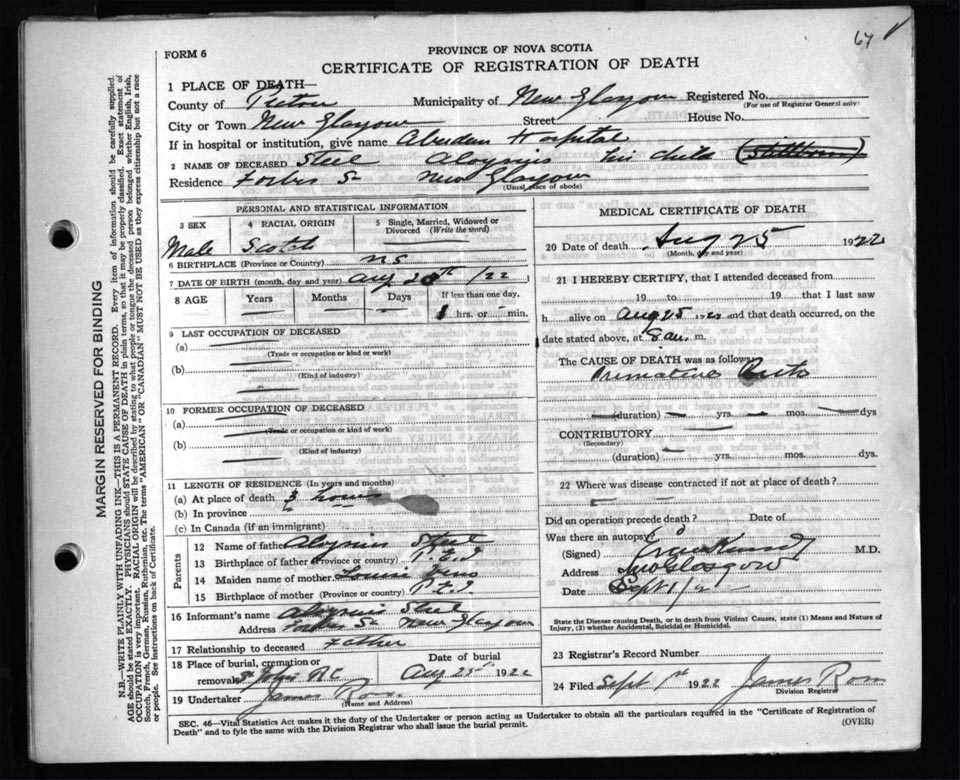 67
FORM 6
PROVINCE OF NOVA SCOTIA
CERTIFICATE OF REGISTRATION OF DEATH
1 PLACE OF DEATH—
County of Pictou Municipality of New Glasgow Registered No.
(For use of Registrar General only)
City or Town New Glasgow Street House No.
If in hospital or institution, give name Aberdeen Hospital
2 NAME OF DECEASED Steel Aloysius his child (Stillborn)
Residence Forbes St New Glasgow
(Usual place of abode)
PERSONAL AND STATISTICAL INFORMATION
3 SEX 4 RACIAL ORIGIN 5 Single, Married, Widowed or Divorced (Write the word)
Male Scotch
6 BIRTHPLACE (Province or Country) NS
7 DATE OF BIRTH (month, day and year) Aug 25th /22
8 AGE Years Months Days If less than one day,
hrs. or min.
9 LAST OCCUPATION OF DECEASED
(a)
(Trade or occupation or kind or work)
(b)
(Kind of industry)
10 FORMER OCCUPATION OF DECEASED
(a)
(Trade or occupation or kind or work)
(b)
(Kind of industry)
11 LENGTH OF RESIDENCE (In years and months)
(a) At place of death 3 hours
(b) In province
(c) In Canada (if an immigrant)
Parents
12 Name of father Aloysius Steel
13 Birthplace of father (Province or country) P.E.I
14 Maiden name of mother
15 Birthplace of mother (Province or country) P.E.I.
16 Informant's name Aloysius Steel
Address Forbes St New Glasgow
17 Relationship to deceased Father
18 Place of burial, cremation or removal St John RC
Date of burial Aug 25th 1922
19 Undertaker James Ross
(Name and Address)
MEDICAL CERTIFICATE OF DEATH
20 Date of death Aug 25 1922
(Month, day and year)
21 I HEREBY CERTIFY, that I attended deceased from
19 to 19 that I last saw
h alive on Aug 25 1922 and that death occurred, on the
date stated above, at 8 a.m. m.
The CAUSE OF DEATH was as follows:
Premature Birth
(duration) yrs. mos. dys
CONTRIBUTORY
(Secondary)
(duration) yrs. mos. dys.
22 Where was disease contracted if not at place of death?
Did an operation precede death? Date of
Was there an autopsy?
(Signed) M.D.
Address New Glasgow
Date Sept 1/2
State the Disease causing Death, or in death from Violent Causes, state (1) Means and Nature of
Injury, (2) whether Accidental, Suicidal or Homicidal.
23 Registrar's Record Number
24 Filed Sept 1st 1922 James Ross
Division Registrar
SEC. 46—Vital Statistics Act makes it the duty of the Undertaker or person acting as Undertaker to obtain all the particulars required in the "Certificate of Registration of
Death" and to fyle the same with the Division Registrar who shall issue the burial permit. (OVER)
MARGIN RESERVED FOR BINDING
N.B.—WRITE PLAINLY WITH UNFADING INK—THIS IS A PERMANENT RECORD. Every item of information should be carefully supplied.
AGE should be stated EXACTLY. PHYSICIANS should STATE CAUSE OF DEATH in plain terms, so that it may be properly classified. Exact statement of
OCCUPATION is very important. RACIAL ORIGIN will be described by stating to what people or tongue the deceased person belonged whether English, Irish,
Scotch, French, German, Russian, Ruthenian, etc. The terms "AMERICAN" OR "CANADIAN" MUST NOT BE USED as they express citizenship but not a race
or people. See instructions on back of Certificate.